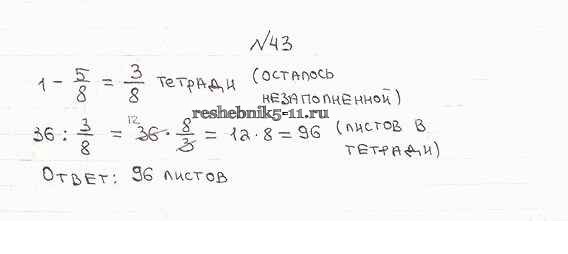 №43
1 - 5/8 = 3/8 тетради (осталось
незаполненной)
reshebnik5-11.ru
36 : 3/8 = 36 12 · 8/3 = 12 · 8 = 96 (листов в
тетради)
Ответ: 96 листов